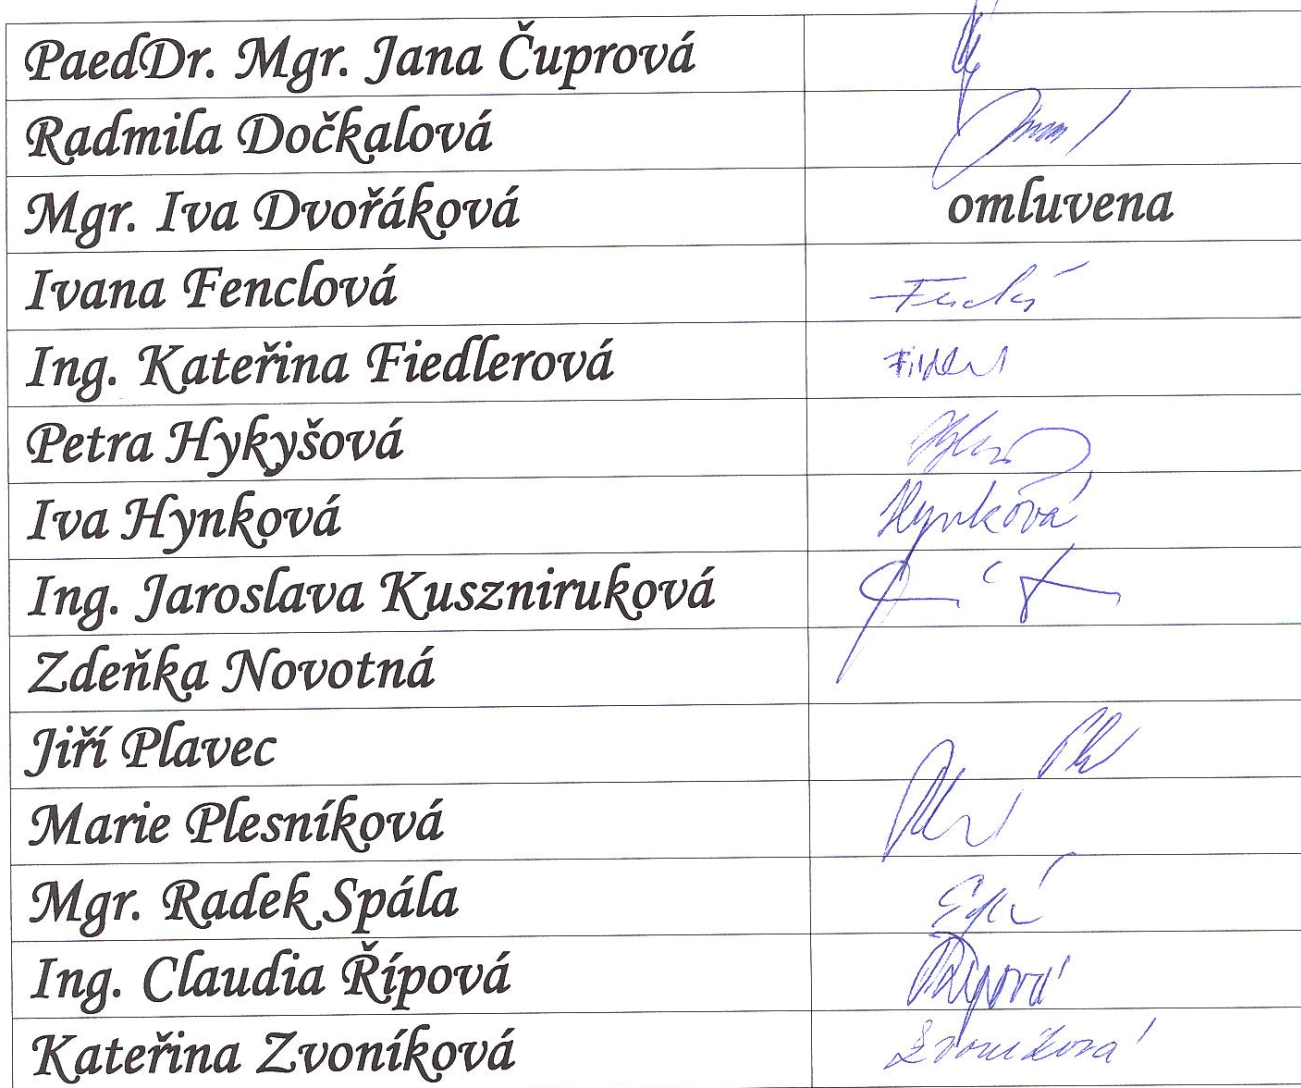 PaedDr. Mgr. Jana Čuprová
Radmila Dočkalová
Mgr. Iva Dvořáková omluvena
Ivana Fenclová
Ing. Kateřina Fiedlerová
Petra Hykyšová
Iva Hynková Hynková
Ing. Jaroslava Kuszniruková
Zdeňka Novotná
Jiří Plavec
Marie Plesníková
Mgr. Radek Spála
Ing. Claudia Řípová Řípová
Kateřina Zvoníková Zvoníková